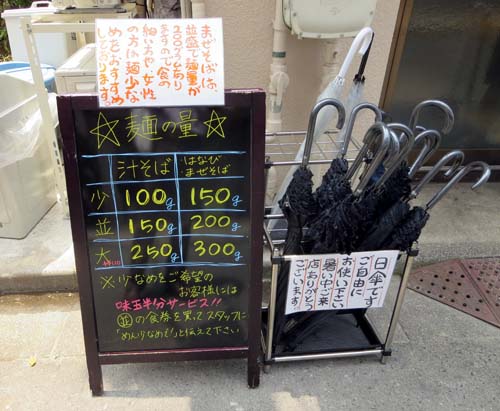 まぜそばは、
並盛で麺量が
200gあり
ますので食の
細い方や女性
の方は麺少な
めをおすすめ
しております。
☆麺の量☆
汁そば
はなび
まぜそば
少 100g 150g
並 150g 200g
大 250g 300g
※少なめをご希望の
お客様には
味玉半分サービス!!
並の食券を買ってスタッフに
「めんりなめで!」と伝えて下さい
日傘です
ご自由に
お使い下さい
暑い中ご来
店ありがとう
ございます!